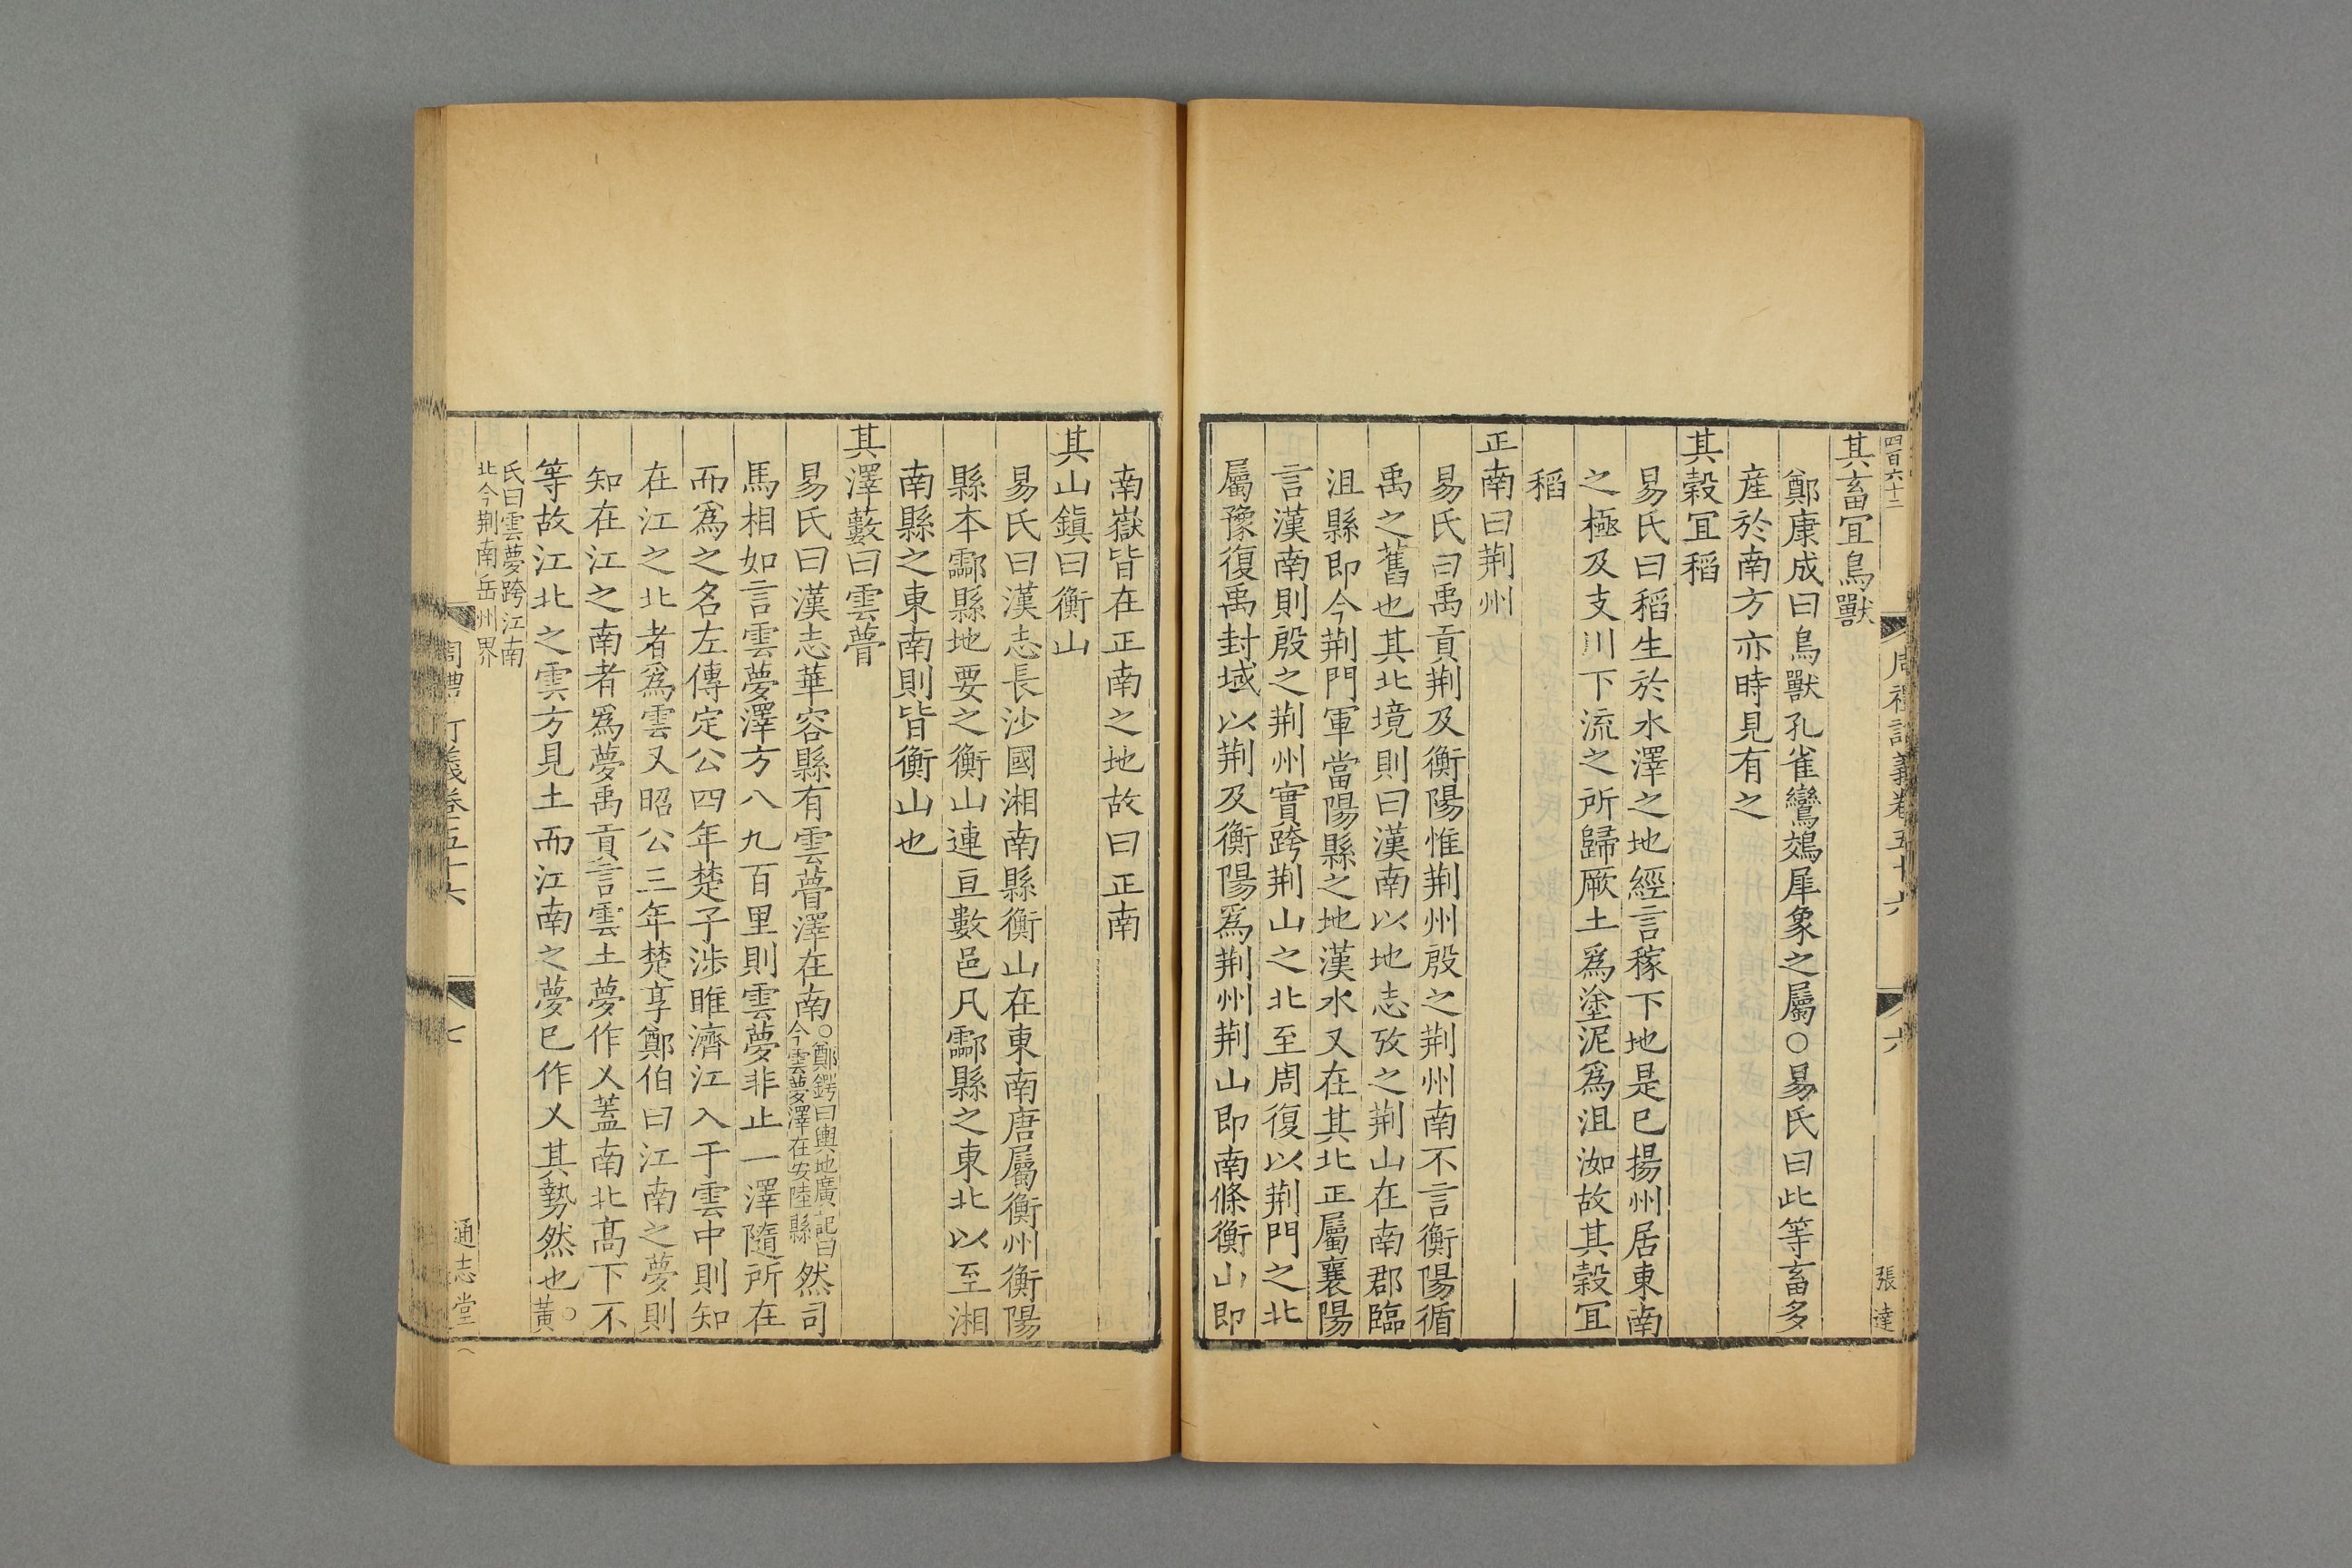 四百六十二
周禮訂義卷五十六
六
張達
其畜宜鳥獸
鄭康成曰鳥獸孔雀鸞鵁犀象之屬○易氏曰此等畜多
産於南方亦時見有之
其穀宜稻
易氏曰稻生於水澤之地經言稼下地是已揚州居東南
之極及支川下流之所歸厥土爲塗泥爲沮洳故其穀宜
稻
正南曰荆州
易氏曰禹貢荆及衡陽惟荆州殷之荆州南不言衡陽循
禹之舊也其北境則曰漢南以地志攷之荆山在南郡臨
沮縣即今荆門軍當陽縣之地漢水又在其北正屬襄陽
言漢南則殷之荆州實跨荆山之北至周復以荆門之北
屬豫復禹封域以荆及衡陽爲荆州荆山即南條衡山即
南嶽皆在正南之地故曰正南
其山鎭曰衡山
易氏曰漢志長沙國湘南縣衡山在東南唐屬衡州衡陽
縣本酃縣地要之衡山連亘數邑凡酃縣之東北以至湘
南縣之東南則皆衡山也
其澤藪曰雲瞢
易氏曰漢志華容縣有雲瞢澤在南○鄭鍔曰輿地廣記曰今雲夢澤在安陸縣然司
馬相如言雲夢澤方八九百里則雲夢非止一澤隨所在
而爲之名左傳定公四年楚子涉睢濟江入于雲中則知
在江之北者爲雲又昭公三年楚享鄭伯曰江南之夢則
知在江之南者爲夢禹貢言雲土夢作乂蓋南北髙下不
等故江北之雲方見土而江南之夢已作乂其勢然也○黃
氏曰雲夢跨江南
北今荆南岳州界
周禮訂義卷五十六
七
通志堂